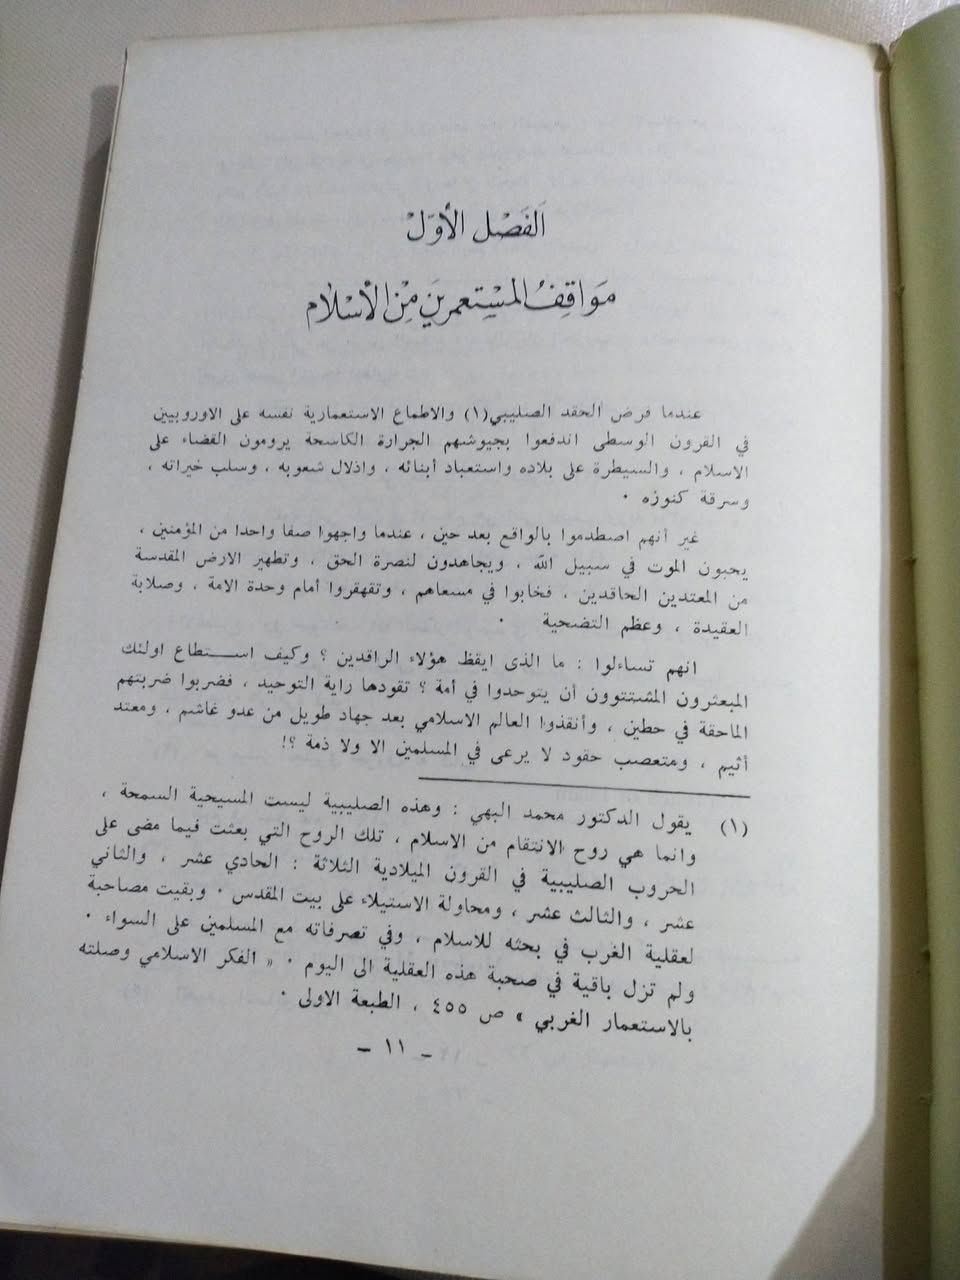 الفَصْل الأوّلْ
مَوَاقِفُ المسْتِعمرينَ مِنْ الأسْلام
عندما فرض الحقد الصليبي(١) والاطماع الاستعمارية نفسه على الاوروبيين
في القرون الوسطى اندفعوا بجيوشهم الجرارة الكاسحة يرومون القضاء على
الاسلام ، والسيطرة على بلاده واستعباد أبنائه ، واذلال شعوبه ، وسلب خيراته ،
وسرقة كنوزه ٠
غير أنهم اصطدموا بالواقع بعد حين ، عندما واجهوا صفا واحدا من المؤمنين ،
يحبون الموت في سبيل الله ، ويجاهدون لنصرة الحق ، وتطهير الارض المقدسة
من المعتدين الحاقدين ، فخابوا في مسعاهم ، وتقهقروا أمام وحدة الامة ، وصلابة
العقيدة ، وعظم التضحية ٠
انهم تساءلوا : ما الذى ايقظ هؤلاء الراقدين ؟ وكيف استطاع اولئك
المبعثرون المشتتوون أن يتوحدوا في أمة ؟ تقودها راية التوحيد ، فضربوا ضربتهم
الماحقة في حطين ، وأنقذوا العالم الاسلامي بعد جهاد طويل من عدو غاشم ، ومعتد
أثيم ، ومتعصب حقود لا يرعى في المسلمين الا ولا ذمة ؟!
(١) يقول الدكتور محمد البهي : وهذه الصليبية ليست المسيحية السمحة ،
وانما هي روح الانتقام من الاسلام ، تلك الروح التي بعثت فيما مضى على
الحروب الصليبية في القرون الميلادية الثلاثة : الحادي عشر ، والثاني
عشر ، والثالث عشر ، ومحاولة الاستيلاء على بيت المقدس ٠ وبقيت مصاحبة
لعقلية الغرب في بحثه للاسلام ، وفي تصرفاته مع المسلمين على السواء ٠
ولم تزل باقية في صحبة هذه العقلية الى اليوم ٠ « الفكر الاسلامي وصلته
بالاستعمار الغربي » ص ٤٥٥ ، الطبعة الاولى ٠
- ١١ -